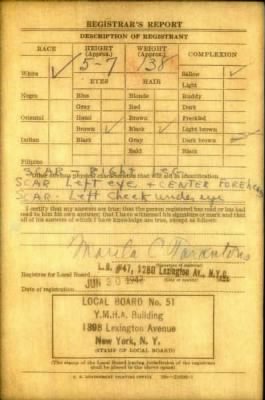 REGISTRAR'S REPORT
DESCRIPTION OF REGISTRANT
RACE HEIGHT (Approx.) WEIGHT (Approx.) COMPLEXION
5-7 138
White ✓ EYES HAIR Sallow ✓
Light
Negro Blue Blonde Ruddy
Gray Red Dark
Oriental Hazel Brown Freckled
Brown ✓ Black ✓ Light brown
Indian Black Gray Dark brown
Bald Black
Filipino
SCAR - RIGHT LEG
Other obvious physical characteristics that will aid in identification
SCAR Left eye + CENTER FOREHEAD
SCAR. Left cheek under eye
I certify that my answers are true; that the person registered has read or has had
read to him his own answers; that I have witnessed his signature or mark and that
all of his answers of which I have knowledge are true, except as follows:
L.B. #47, 1280 Lexington Av., N.Y.C.
Registrar for Local Board
JUN 30 1942
LOCAL BOARD No. 51
Y.M.H.A. Building
1398 Lexington Avenue
New York, N. Y.
(STAMP OF LOCAL BOARD)
(The stamp of the Local Board having jurisdiction of the registrant
shall be placed in the above space)
U. S. GOVERNMENT PRINTING OFFICE